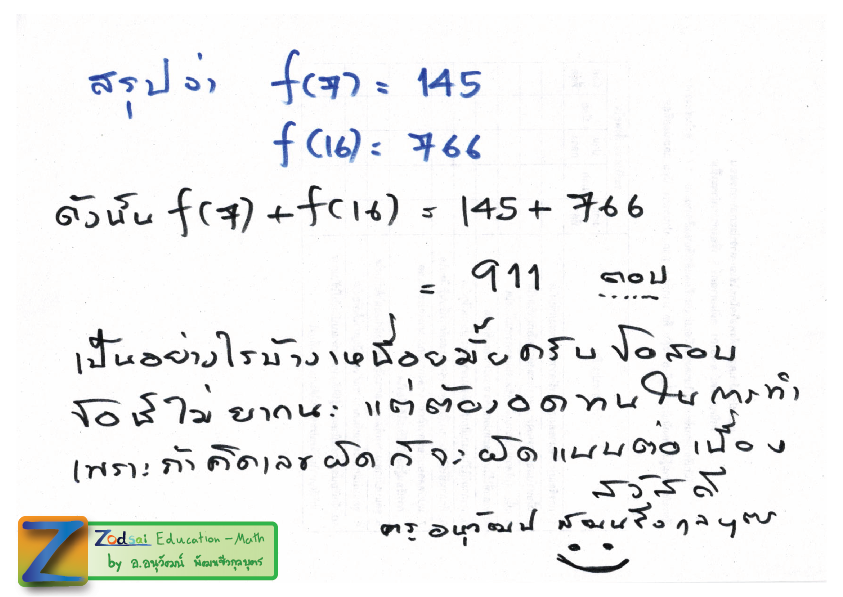 สรุปว่า f(7) = 145
f(16) = 766
ดังนั้น f(7) + f(16) = 145 + 766
= 911 ตอบ
เป็นอย่างไรบ้างเหนื่อยมั้ยครับ ข้อสอบ
ข้อนี้ไม่ยากนะ แต่ต้องอดทนในการทำ
เพราะถ้าคิดเลขผิดก็จะผิดแบบต่อเนื่อง
สวัสดี
ครูอนุวัฒน์
Z Zodsai Education - Math
by อ.อนุวัฒน์